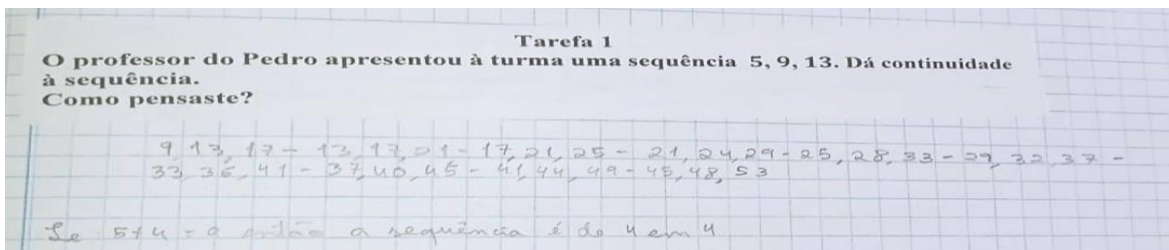 Tarefa 1
O professor do Pedro apresentou à turma uma sequência 5, 9, 13. Dá continuidade
à sequência.
Como pensaste?
9, 13, 17 - 13, 17, 21 - 17, 21, 25 - 21, 24, 29 - 25, 28, 33 - 29, 32, 37 -
33, 36, 41 - 37, 40, 45 - 41, 44, 49 - 45, 48, 53
Se 5+4 = 9 então a sequência é do 4 em 4